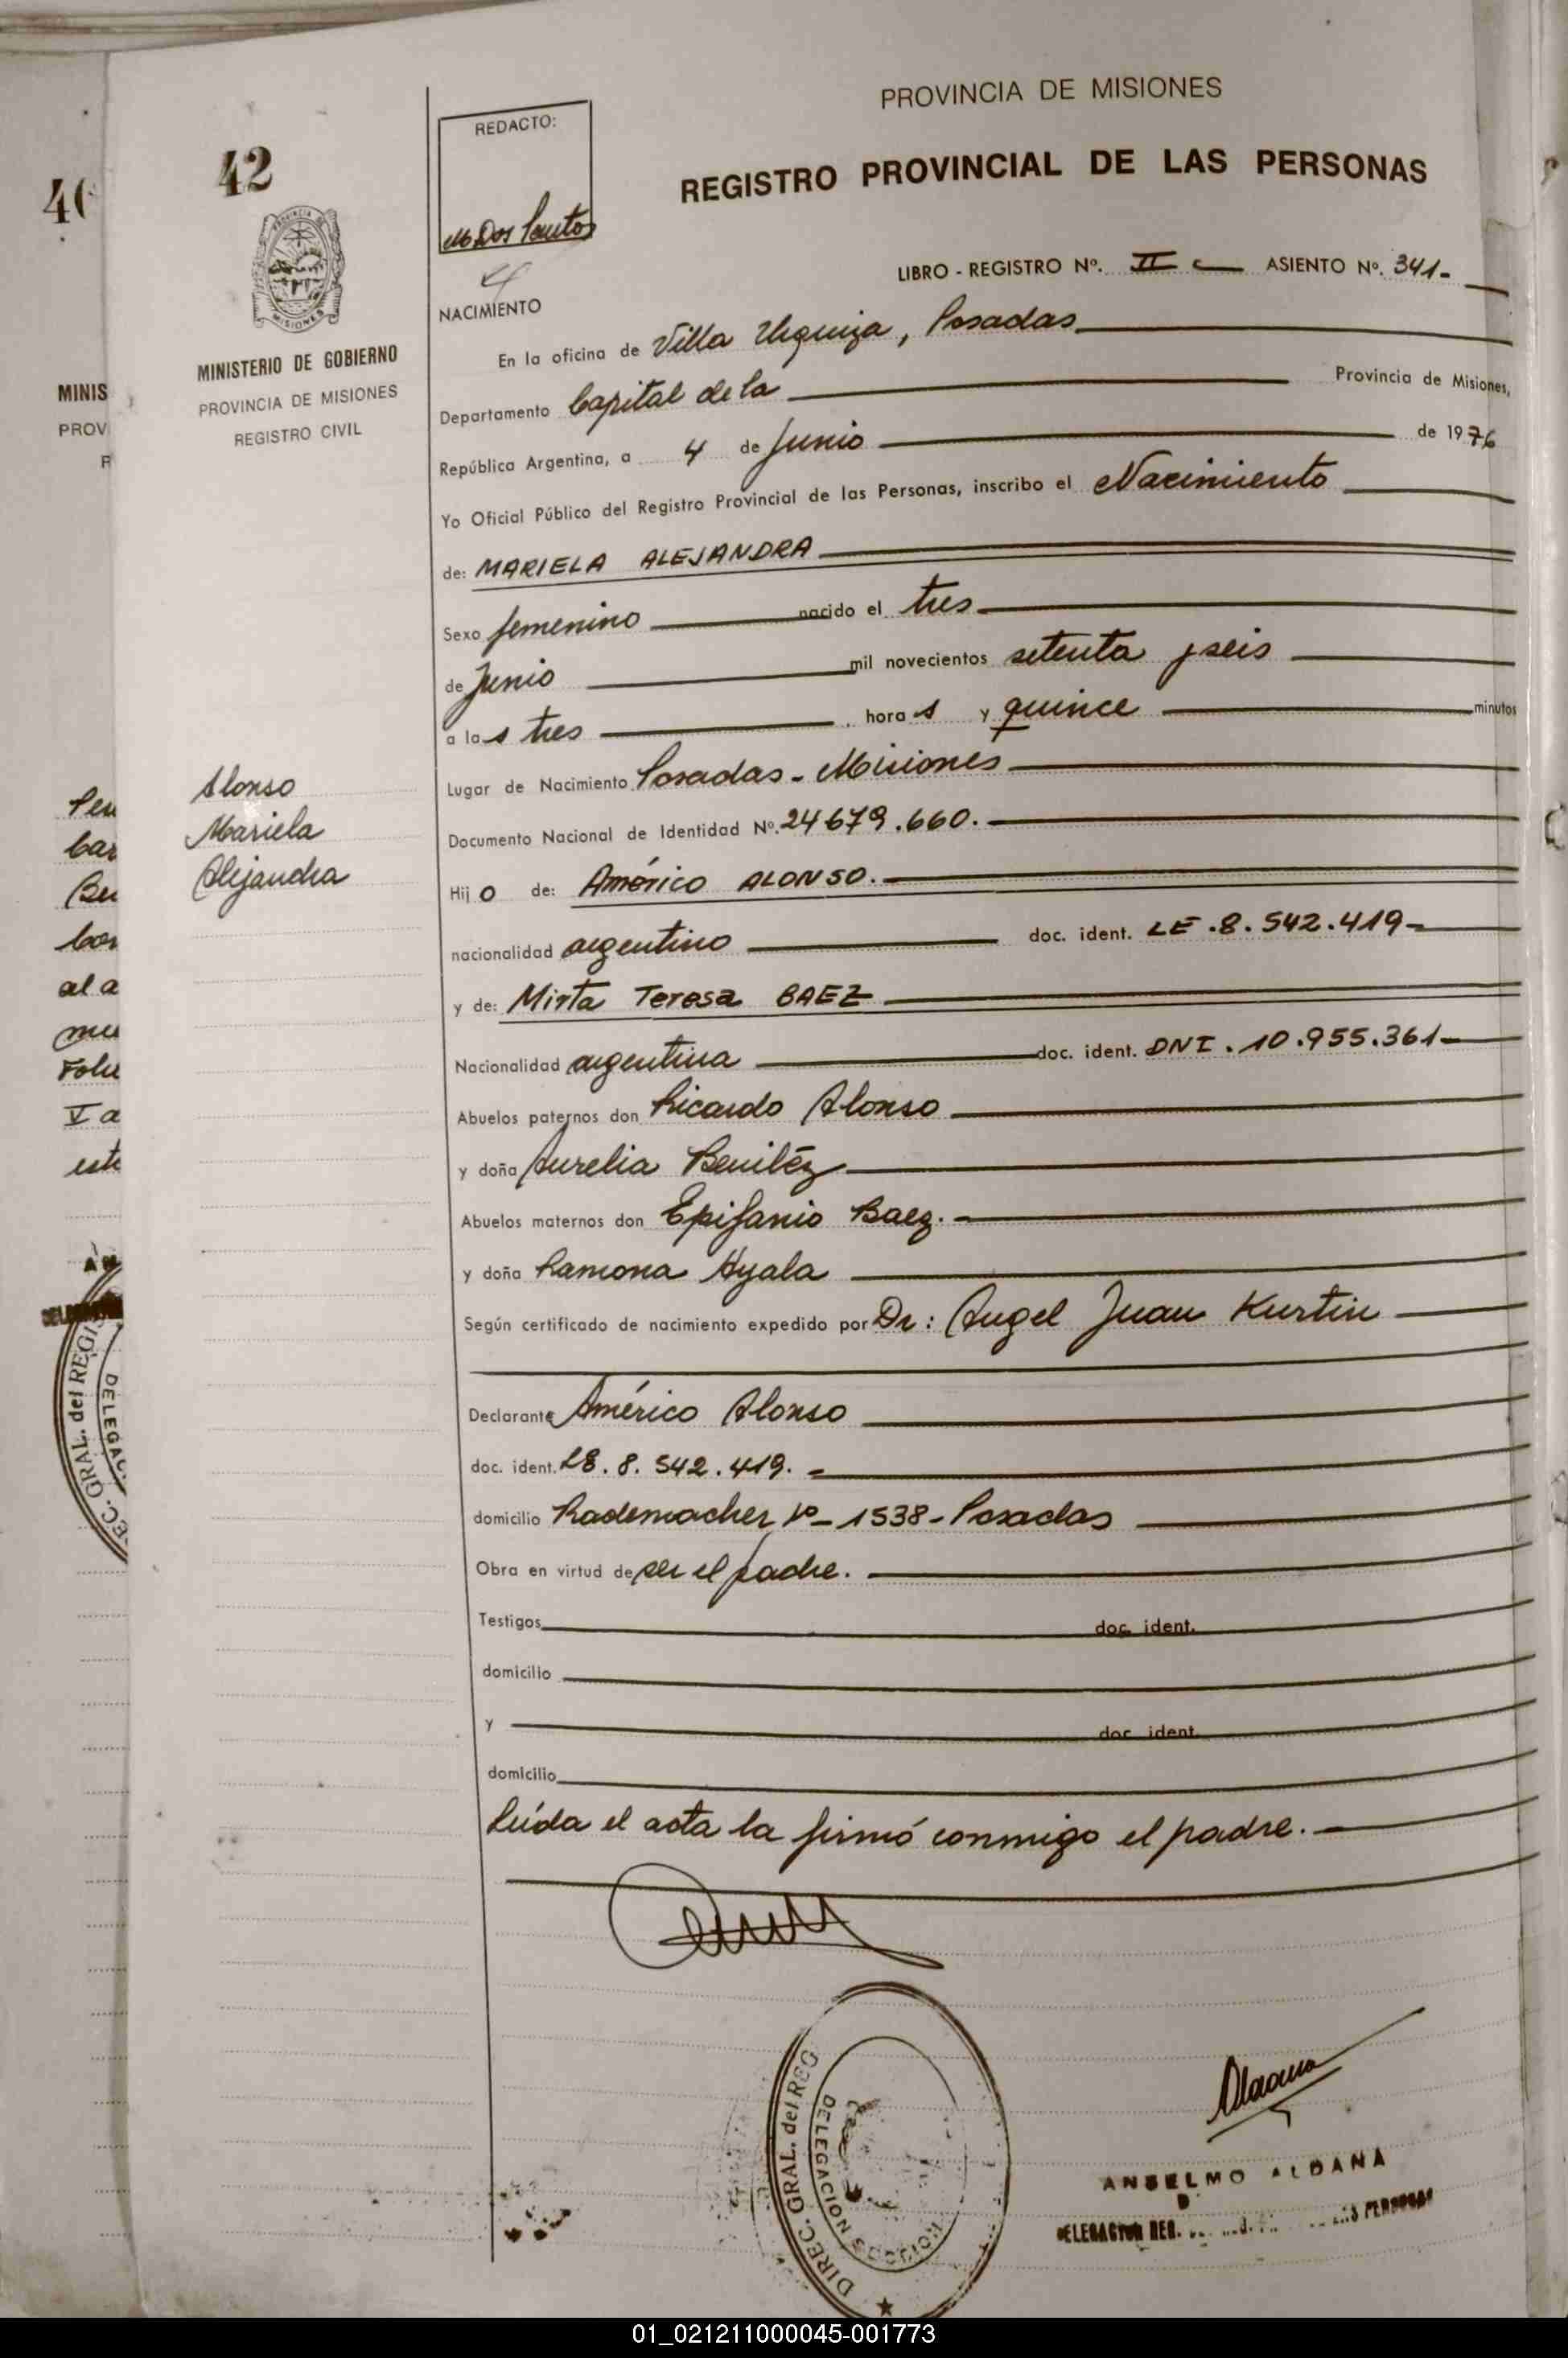 PROVINCIA DE MISIONES
REGISTRO PROVINCIAL DE LAS PERSONAS
42
REDACTO:
M Dos Santos
LIBRO - REGISTRO Nº. II ASIENTO Nº. 341-
NACIMIENTO
MINISTERIO DE GOBIERNO
PROVINCIA DE MISIONES
REGISTRO CIVIL
En la oficina de Villa Urquiza, Posadas
Departamento Capital de la Provincia de Misiones,
República Argentina, a 4 de Junio de 1976
Yo Oficial Público del Registro Provincial de las Personas, inscribo el Nacimiento
de: MARIELA ALEJANDRA
Sexo femenino nacido el tres
de Junio mil novecientos setenta y seis
a las tres horas y quince minutos
Lugar de Nacimiento Posadas - Misiones
Alonso
Mariela
Alejandra
Documento Nacional de Identidad Nº. 24679.660.
Hijo de: Américo ALONSO.
nacionalidad argentino doc. ident. LE.8.542.419-
y de: Mirta Teresa BAEZ
Nacionalidad argentina doc. ident. DNI.10.955.361-
Abuelos paternos don Ricardo Alonso
y doña Aurelia Benítez
Abuelos maternos don Epifanio Baez.
y doña Ramona Ayala
Según certificado de nacimiento expedido por Dr: Angel Juan Kurtin
Declarante Américo Alonso
doc. ident. LE. 8. 542.419.-
domicilio Rademacher Nº- 1538- Posadas
Obra en virtud de ser el padre.
Testigos doc. ident.
domicilio
y doc. ident.
domicilio
Leída el acta la firmó conmigo el padre.-
DIREC. GRAL. del REG
DELEGACION
ANSELMO ALDANA
01_021211000045-001773